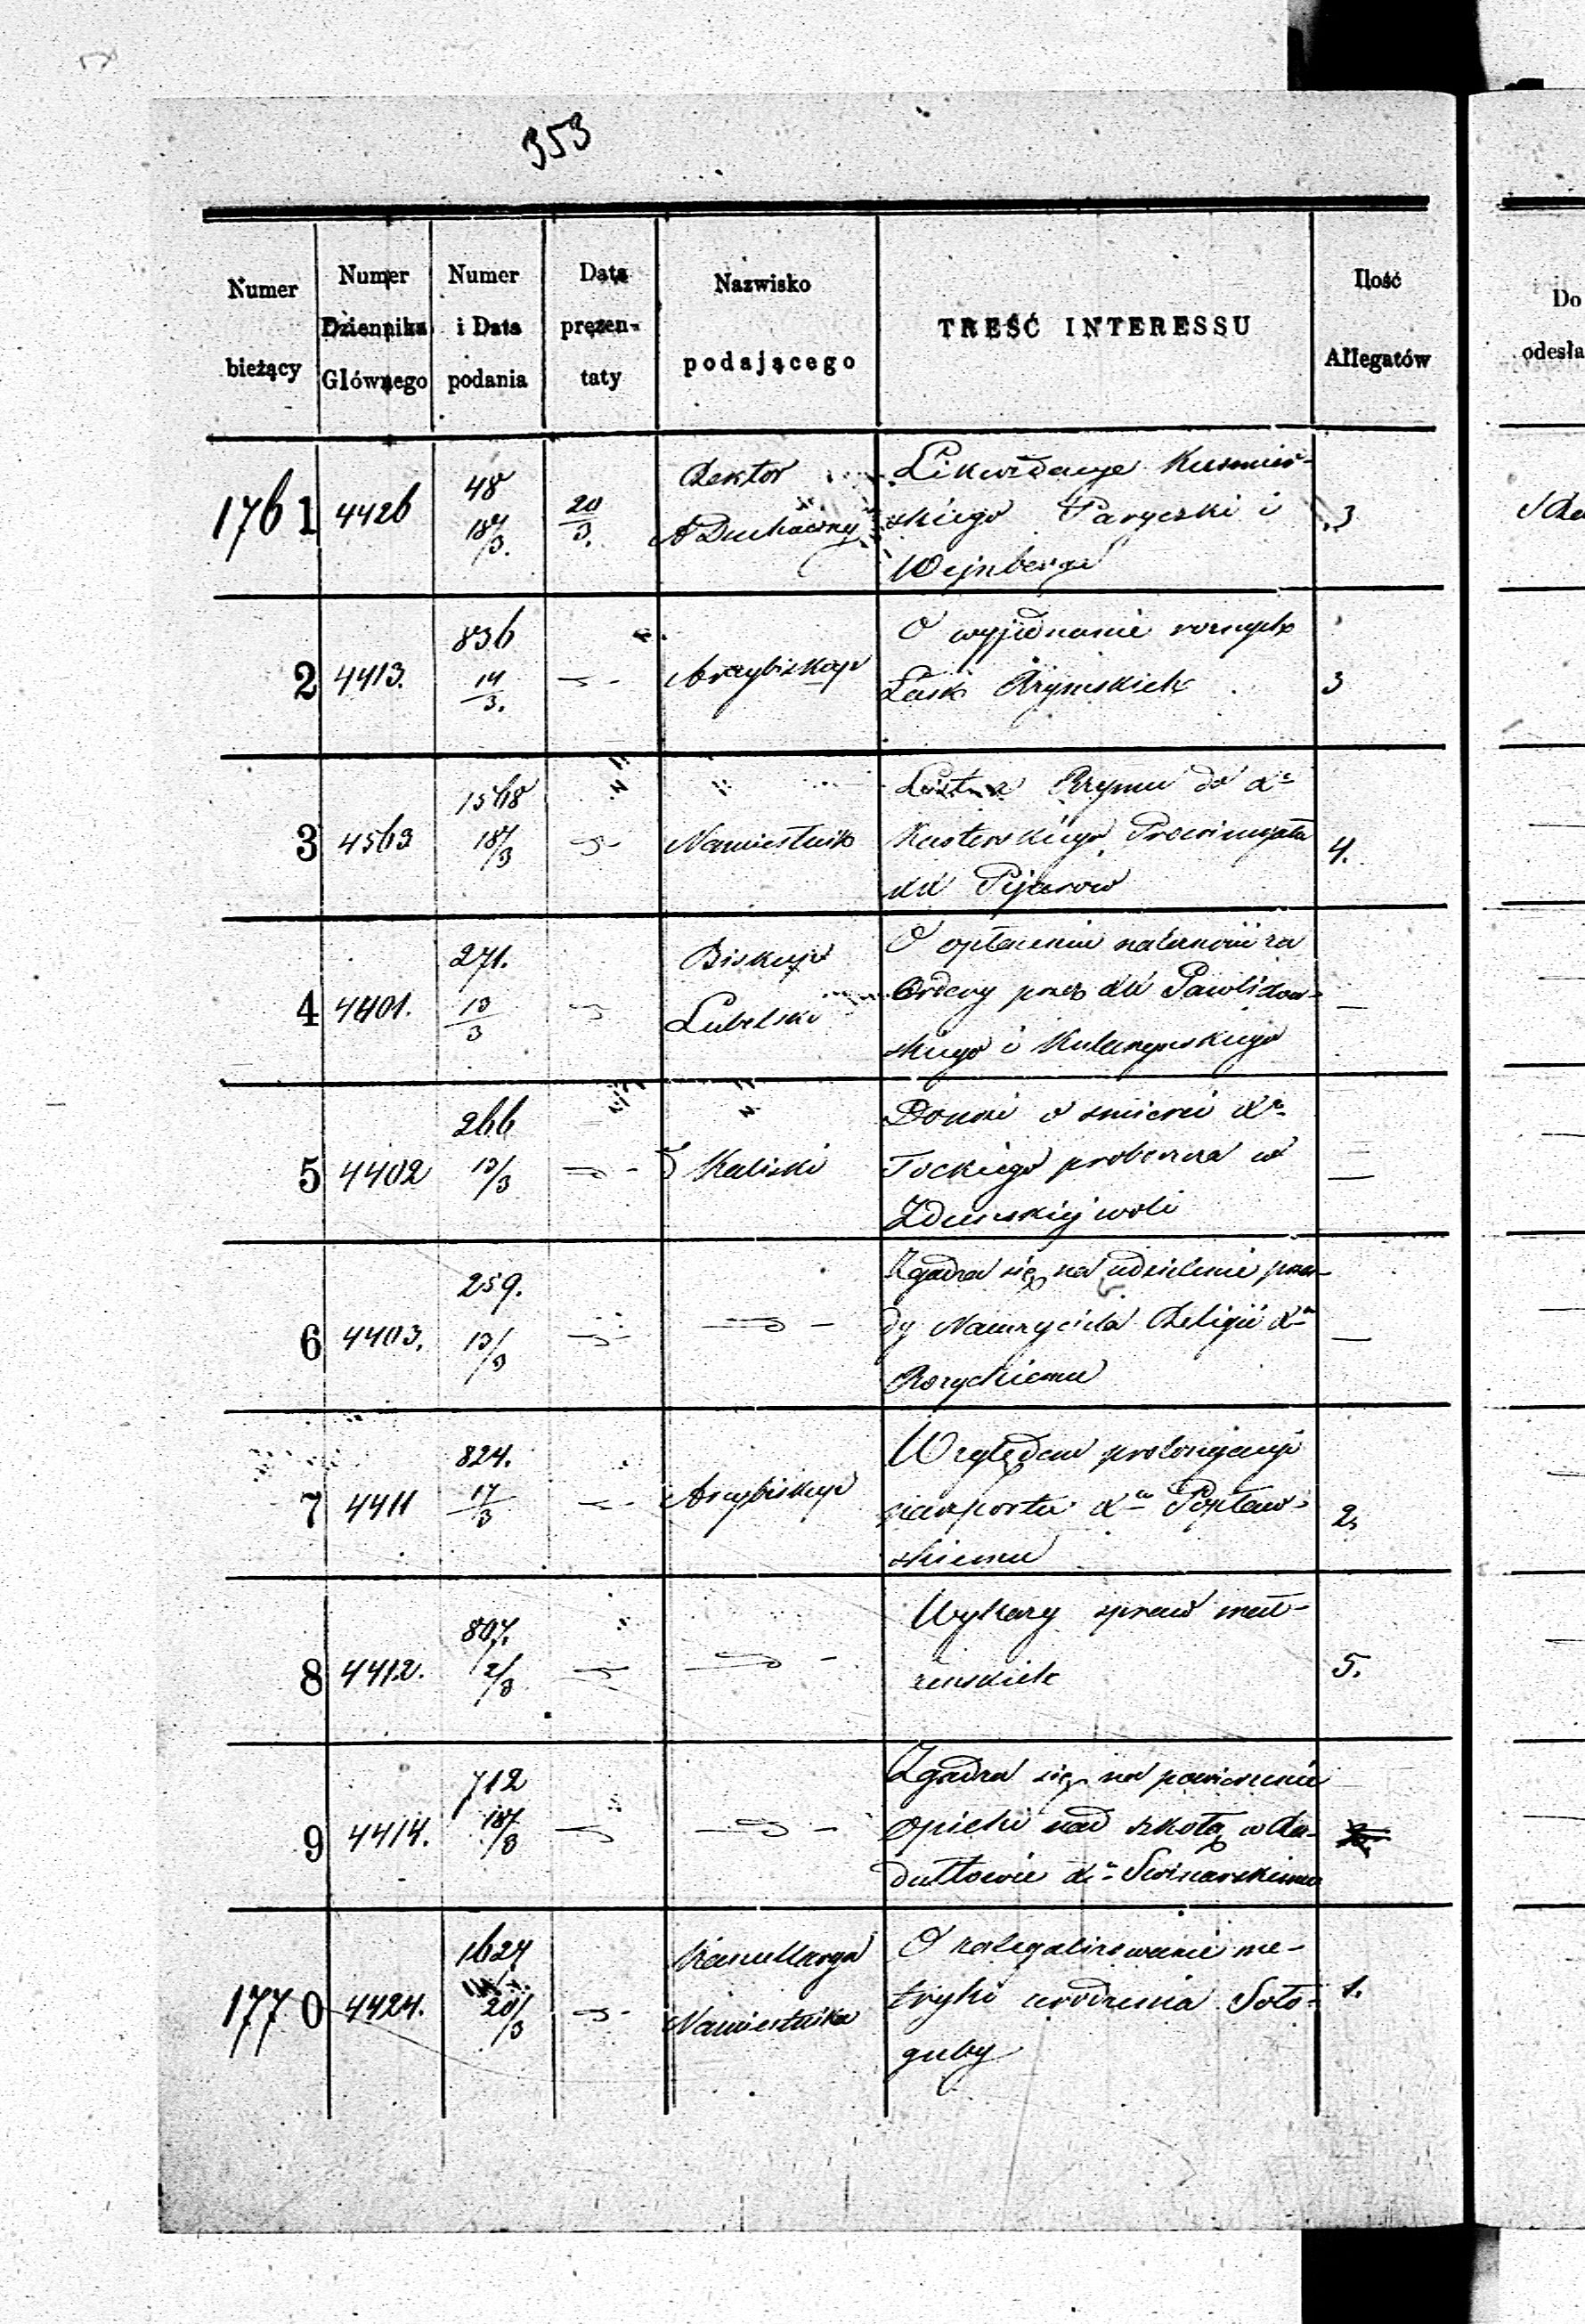 353
Numer bieżący | Numer Dziennika Głównego | Numer i Data podania | Data prezen-taty | Nazwisko podającego | TREŚĆ INTERESSU | Ilość Allegatów | Do odesła
1761 | 4426 | 48 18/3. | 20/3. | Rektor A Duchowney | Likwidacye Kusmier- | 3
skiego Paryczki i
Wejnberga
2 | 4413. | 836 14/3. | Arcybiskup | O wyjednanie roznych | 3
Łask Rzymskich
3 | 4563 | 1568 18/3 | Namiestnik | List z Rzymu do X | 4.
Prowincyała
XX Pijarow
4 | 4401. | 271. 13/3 | Biskup Lubelski | O opłaceniu należności za | —
Ordery przez XX
skiego i
5 | 4402 | 266 13/3 | Kaliski | Donosi o smierci X | —
Tockiego proboszcza w
Zdunskiej woli
6 | 4403. | 259. 13/3 | Zgadza się na udzielenie posa- | —
dy Nauczyciela Religii X
Rozyckiemu
7 | 4411 | 824. 17/3 | Arcybiskup | Względem prolongacyi | 2,
paszportu X Popław-
skiemu
8 | 4412. | 807. 2/3 | Wykazy spraw mał- | 5.
żenskich
9 | 4414. | 712 18/3 | Zgadza się na powierzenie
opieki nad szkołą w Ra-
dułtowie X Swinarskiemu
1770 | 4424. | 1624 20/3 | Kancellarya Namiestnika | O zalegalizowanie me- | 1.
tryki urodzenia Soło-
guby